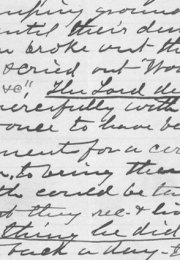 ground
until their du
n broke out th
& cried out "Wo
&c" The Lord de
mercifully with
once to have be
ment for a cer
, to bring the
th could be ta
t they rec. & li
thing he did
back a day - t